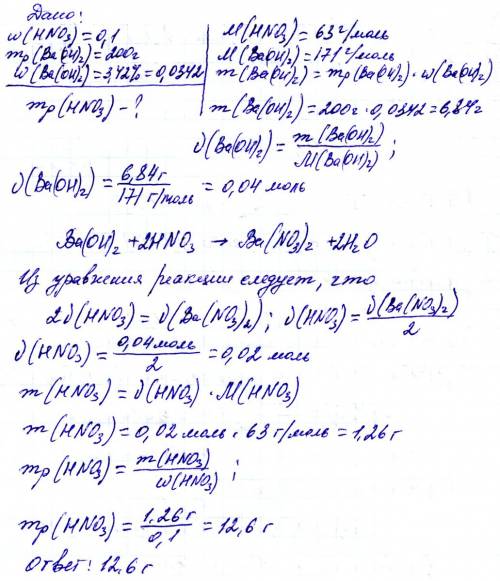 Дано:
w(HNO₃)=0,1
mр(Ba(OH)₂)=200г
w(Ba(OH)₂)=3,42%=0,0342
mр(HNO₃)-?
M(HNO₃)=63 г/моль
M(Ba(OH)₂)=171 г/моль
m(Ba(OH)₂)=mр(Ba(OH)₂)·w(Ba(OH)₂)
m(Ba(OH)₂)=200г·0,0342=6,84г
υ(Ba(OH)₂)=m(Ba(OH)₂)/M(Ba(OH)₂);
υ(Ba(OH)₂)=6,84г/171 г/моль=0,04 моль
Ba(OH)₂+2HNO₃→Ba(NO₃)₂+2H₂O
Из уравнения реакции следует, что
2υ(HNO₃)=υ(Ba(NO₃)₂); υ(HNO₃)=υ(Ba(NO₃)₂)/2
υ(HNO₃)=0,04моль/2=0,02 моль
m(HNO₃)=υ(HNO₃)·M(HNO₃)
m(HNO₃)=0,02 моль·63 г/моль=1,26 г
mр(HNO₃)=m(HNO₃)/w(HNO₃);
mр(HNO₃)=1,26 г/0,1=12,6 г
Ответ: 12,6 г